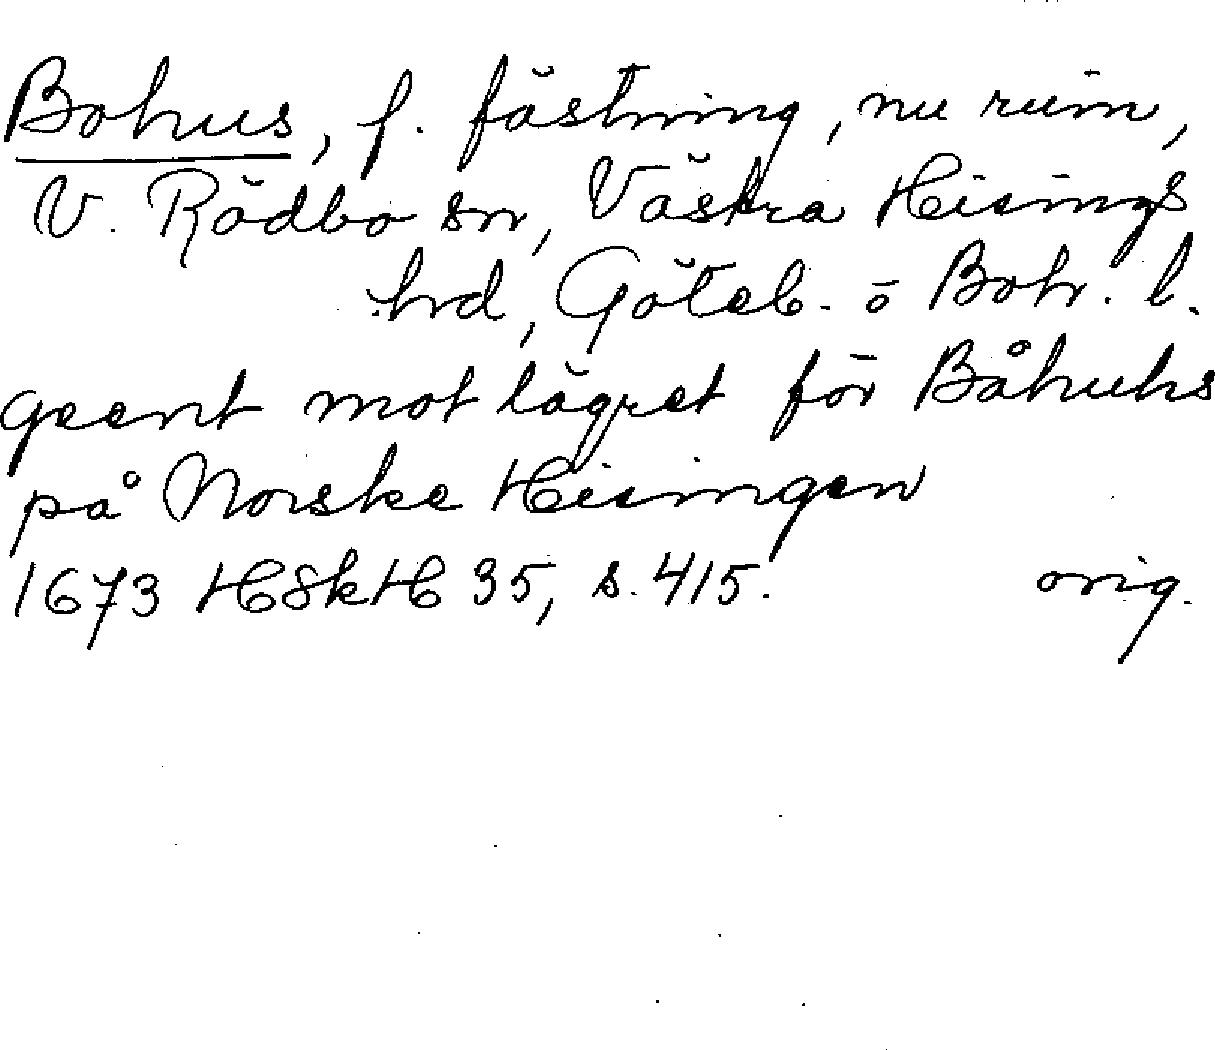 Bohus, f. fästning, nu ruin,
V. Rödbo sn, Västra Hisings
hrd, Göteb. o Boh. l.
geent mot lägret för Båhuhs
på Norske Hisingen
1673 HSkH 35, s. 415. orig.